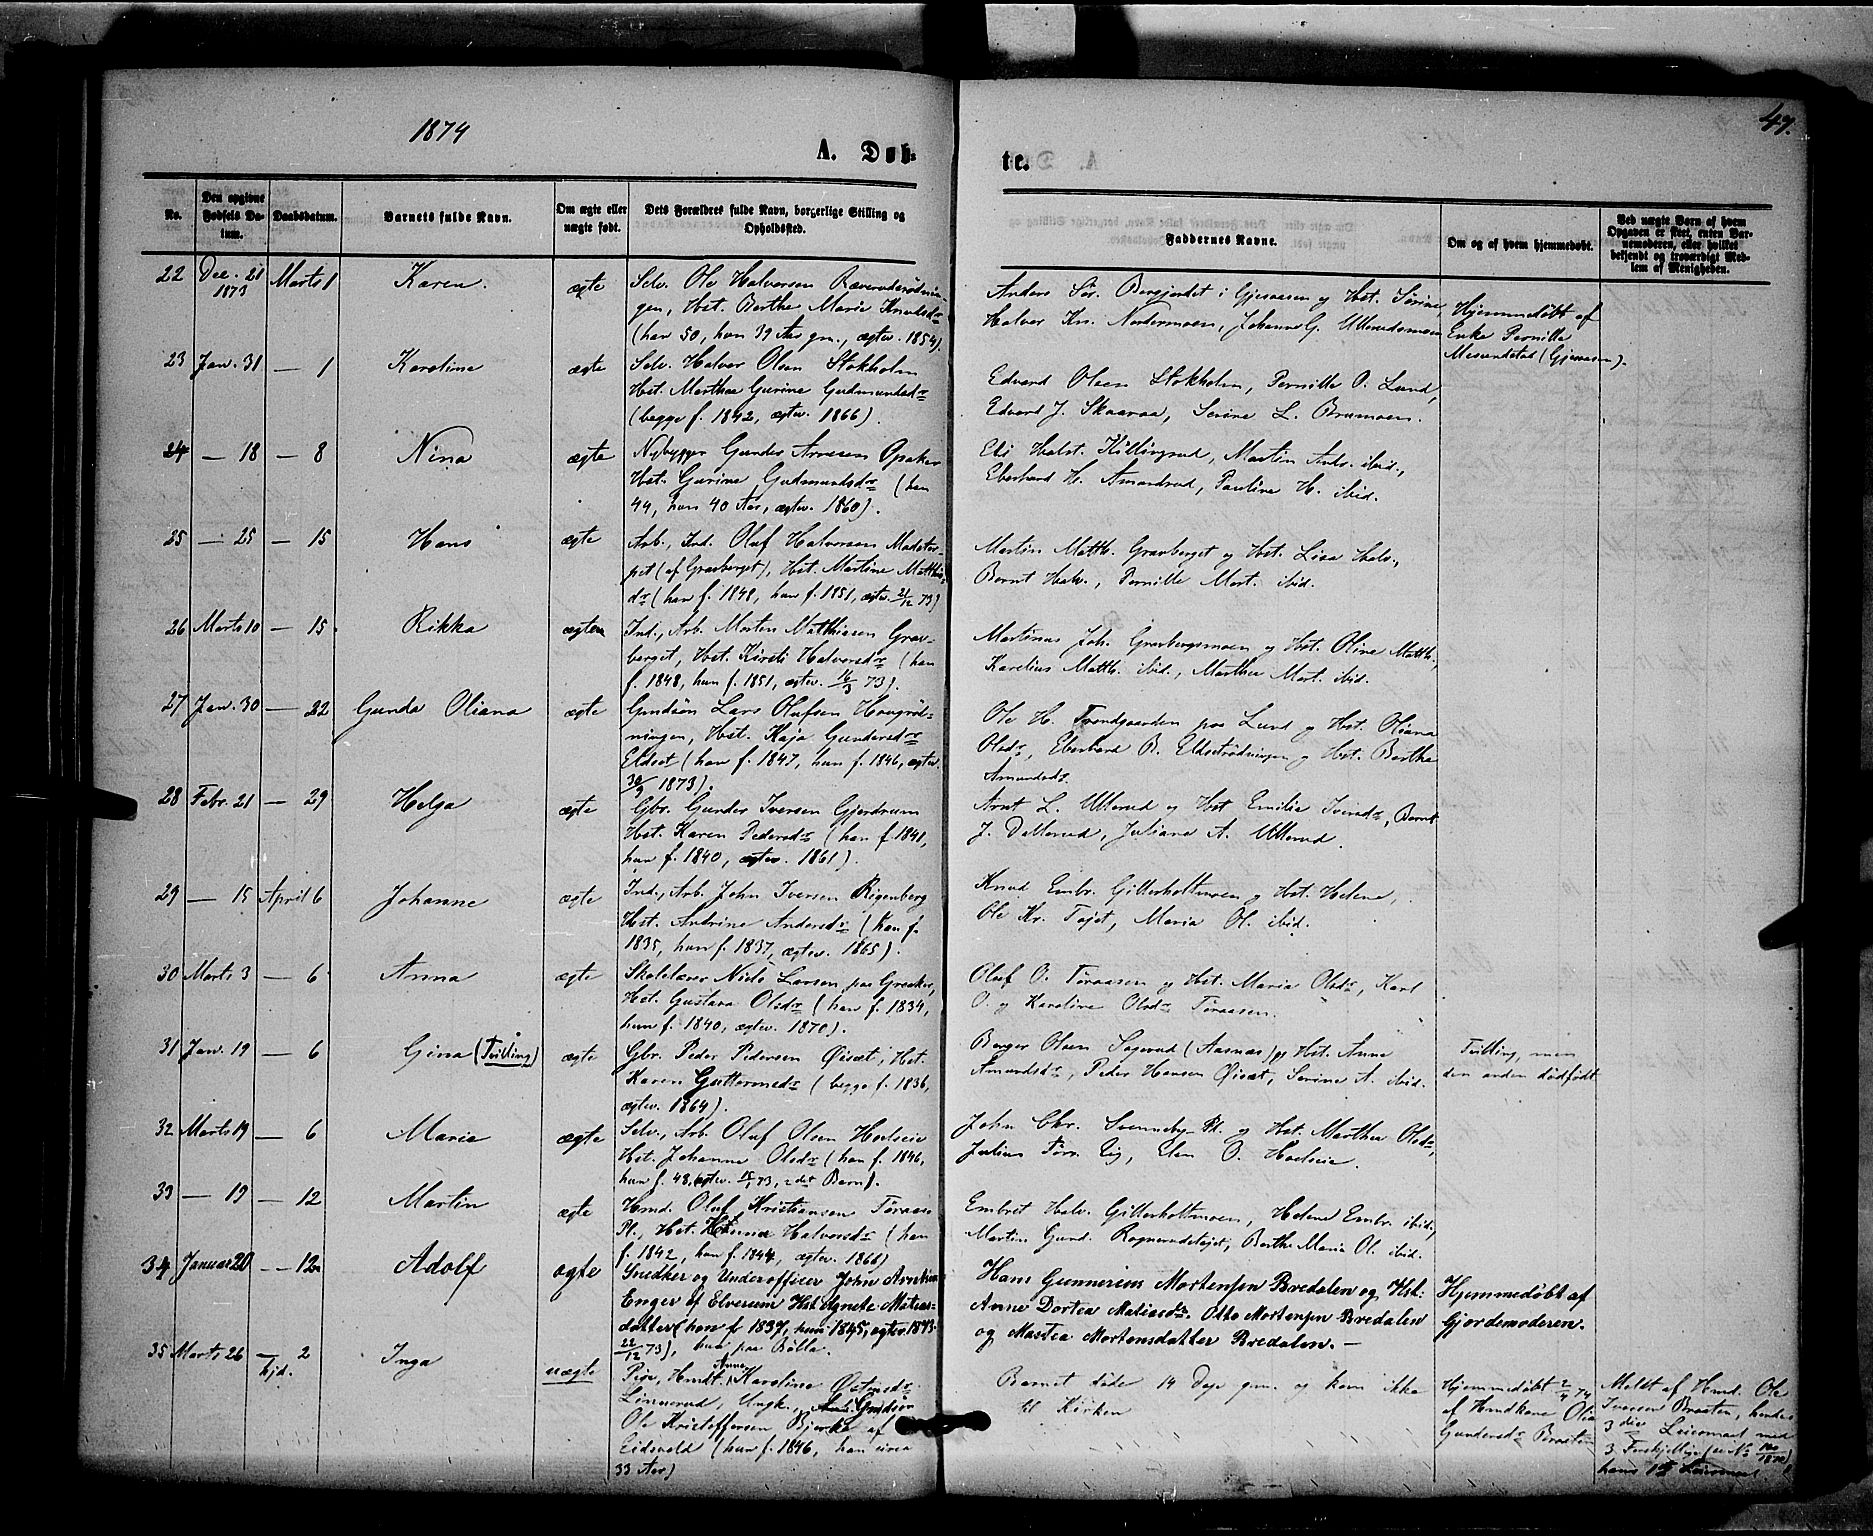 1874
47.
A. Døb-
te.
No.
Den opgivne
Fødsels Da-
tum.
Daabsdatum.
Barnets fulde Navn.
Om ægte eller
uægte født.
Dets Forældres fulde Navn, borgerlige Stilling og
Opholdssted.
Faddernes Navne.
Om og af hvem hjemmedøbt.
Ved uægte Børn af hvem
Opgaven er skeet, enten Bar-
nemoderen, eller hvilket
bekjendt og troværdigt Med-
lem af Menigheden.
22 Dec. 21 Marts 1 Karen. ægte Selv. Ole Halvorsen
1873
gen, Hst. Berthe Marie Knudsdr
(han 50, hun 39 Aar gm., ægtev. 1854).
Anders Sør. Bergjordet i Gjesaasen og Hst. Sørine,
Halvor Kr. Nordermoen, Johanne G. Ullerudsmoen
Hjemmedøbt af
Enke Pernille
(Gjesaasen).
23 Jan. 31 — 1 Karoline ægte Selv. Halvor Olsen Stokholm
Hst. Marthea Gurine Gudmundsdr
(begge f. 1842, ægtev. 1866).
Edvard Olsen Stokholm, Pernille O. Lund,
Edvard J. Skaaraa, Serine L. Brumoen.
24 — 18 — 8 Nina ægte Nybygger Gunder Arnesen Opaker
Hst. Gurine Gudmundsdr (han
44, hun 40 Aar, ægtev. 1860).
Eli Halst. Killingrud, Martin Andr. ibid.,
Eberhard H. Amundrud, Pauline H. ibid.
25 — 25 — 15 Hans ægte Arb., Ind. Oluf Halvorsen Madster-
pet (af Gravberget), Hst. Martine Matthis-
dr (han f. 1848, hun f. 1851, ægtev. 21/12 73)
Martin Matth. Gravberget og Hst. Lisa Halv.,
Bernt Halv., Pernille Mort. ibid.
26 Marts 10 — 15 Rikka ægte Ind., Arb. Morten Matthiasen Grav-
berget, Hst. Kirsti Halvorsdr (han
f. 1848, hun f. 1851, ægtev. 16/3 73).
Martinus Joh. Gravbergsmoen og Hst. Oline Matth.,
Karelius Matth. ibid., Marthea Mort. ibid.
27 Jan. 30 — 22 Gunda Oliana ægte Gmdsøn Lars Olufsen Haugrød-
ningen, Hst. Kaja Gundersdr
Eldset (han f. 1847, hun f. 1846, ægtev.
30/9 1873).
Ole H. Tvendgaarden paa Lund og Hst. Oliana
Olsdr, Eberhard B. Eldsetrødningen og Hst. Berthe
Amundsdr.
28 Febr. 21 — 29 Helga ægte Gbr. Gunder Iversen Gjerdrum
Hst. Karen Pedersdr (han f. 1841,
hun f. 1840, ægtev. 1861).
Arnt L. Ullerud og Hst Emilie Iversdr, Bernt
J. Dellerud, Juliane A. Ullerud.
29 — 15 April 6 Johanne ægte Ind., Arb. John Iversen Rigenberg
Hst. Andrine Andersdr (han f.
1835, hun f. 1837, ægtev. 1865).
Knud Embr. Gitterholtmoen og Hst. Helene,
Ole Kr. Tøjet, Maria Ol. ibid.
30 Marts 3 — 6 Anna ægte Skolelærer Niels Larsen paa Grøsker,
Hst. Gustava Olsdr (han f. 1834,
hun f. 1840, ægtev. 1870).
Oluf O. Tøraasen og Hst. Maria Olsdr, Karl
O. og Karoline Olsdr Tøraasen.
31 Jan. 19 — 6 Gina (Tvilling) ægte Gbr. Peder Pedersen Øisæt, Hst.
Karen Guttormsdr (begge f. 1836,
ægtev. 1864).
Berger Olsen Sagerud (Aasnæs) og Hst. Anne
Amundsdr, Peder Hansen Øisæt, Serine A. ibid.
Tvilling, men
den anden dødfødt
32 Marts 19 — 6 Marie ægte Selv., Arb. Oluf Olsen Hoelseie
Hst. Johanne Olsdr (han f. 1846,
hun f. 48, ægtev. 15/1 73, 2det Barn).
John Chr. Svenneby Pl. og Hst. Marthea Olsdr,
Julius Tørr. Lig, Elen O. Hoelseie.
33 — 19 — 12 Martin ægte Hmd. Oluf Kristiansen Tøraas
Pl., Hst. Hanna Halvorsdr (han
f. 1842, hun f. 1844, ægtev. 1866)
Embret Halv. Gitterholtmoen, Helene Embr. ibid.,
Martin Gund. Rognerudstøjet, Berthe Maria Ol. ibid.
34 Januar 20 — 12 Adolf ægte Snedker og Underofficer John Arntsen
Enger af Elverum Hst Agnete Matias-
datter (han f. 1837, hun 1845, ægtev. 1873
22/12 73), hun paa Bølla.
Hans Gunnerius Mortensen Bredalen og Hst.
Anne Dortea Matiasdr. Otto Mortensen Bredalen
og Martea Mortensdatter Bredalen. —
Hjemmedøbt af
Gjordemoderen.
35 Marts 26 — 2 Inga uægte Pige, Hmdt. Anne Karoline Østmdr
hjd.
Linnerud, Ungk. Gmdsøn
Ole Kristoffersen Bjerke af
Eidsvold (hun f. 1846, han circa
33 Aar)
Barnet døde 14 Dage gm. og kom ikke
til Kirken
Hjemmedøbt 2/4 74
af Hmdkone Olia
Gundersdr Braaten
Meldt af Hmd. Ole
Iversen Braaten, hendes
3die Leiermaal med
3 Forskjellige (se No 100/1872)
hans 1ste Leiermaal.